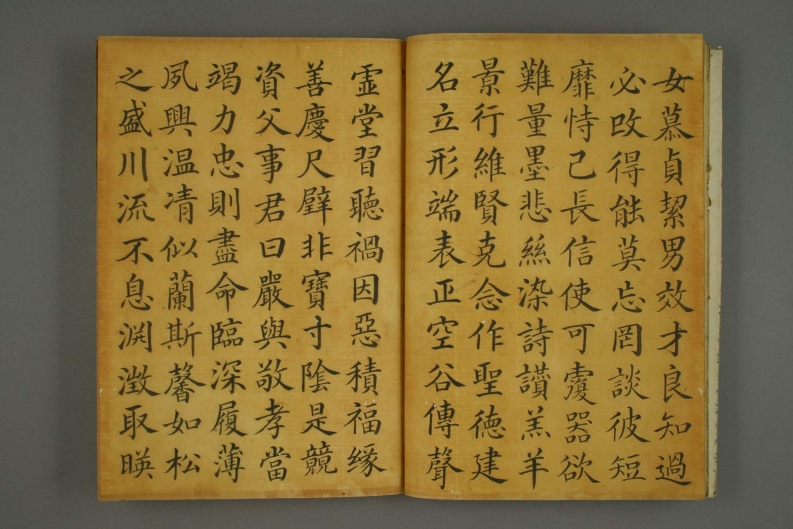 女慕貞絜男效才良知過
必改得能莫忘罔談彼短
靡恃己長信使可覆器欲
難量墨悲絲染詩讃羔羊
景行維賢克念作聖德建
名立形端表正空谷傳聲
虛堂習聽禍因惡積福緣
善慶尺璧非寶寸陰是競
資父事君曰嚴與敬孝當
竭力忠則盡命臨深履薄
夙興温凊似蘭斯馨如松
之盛川流不息淵澂取暎